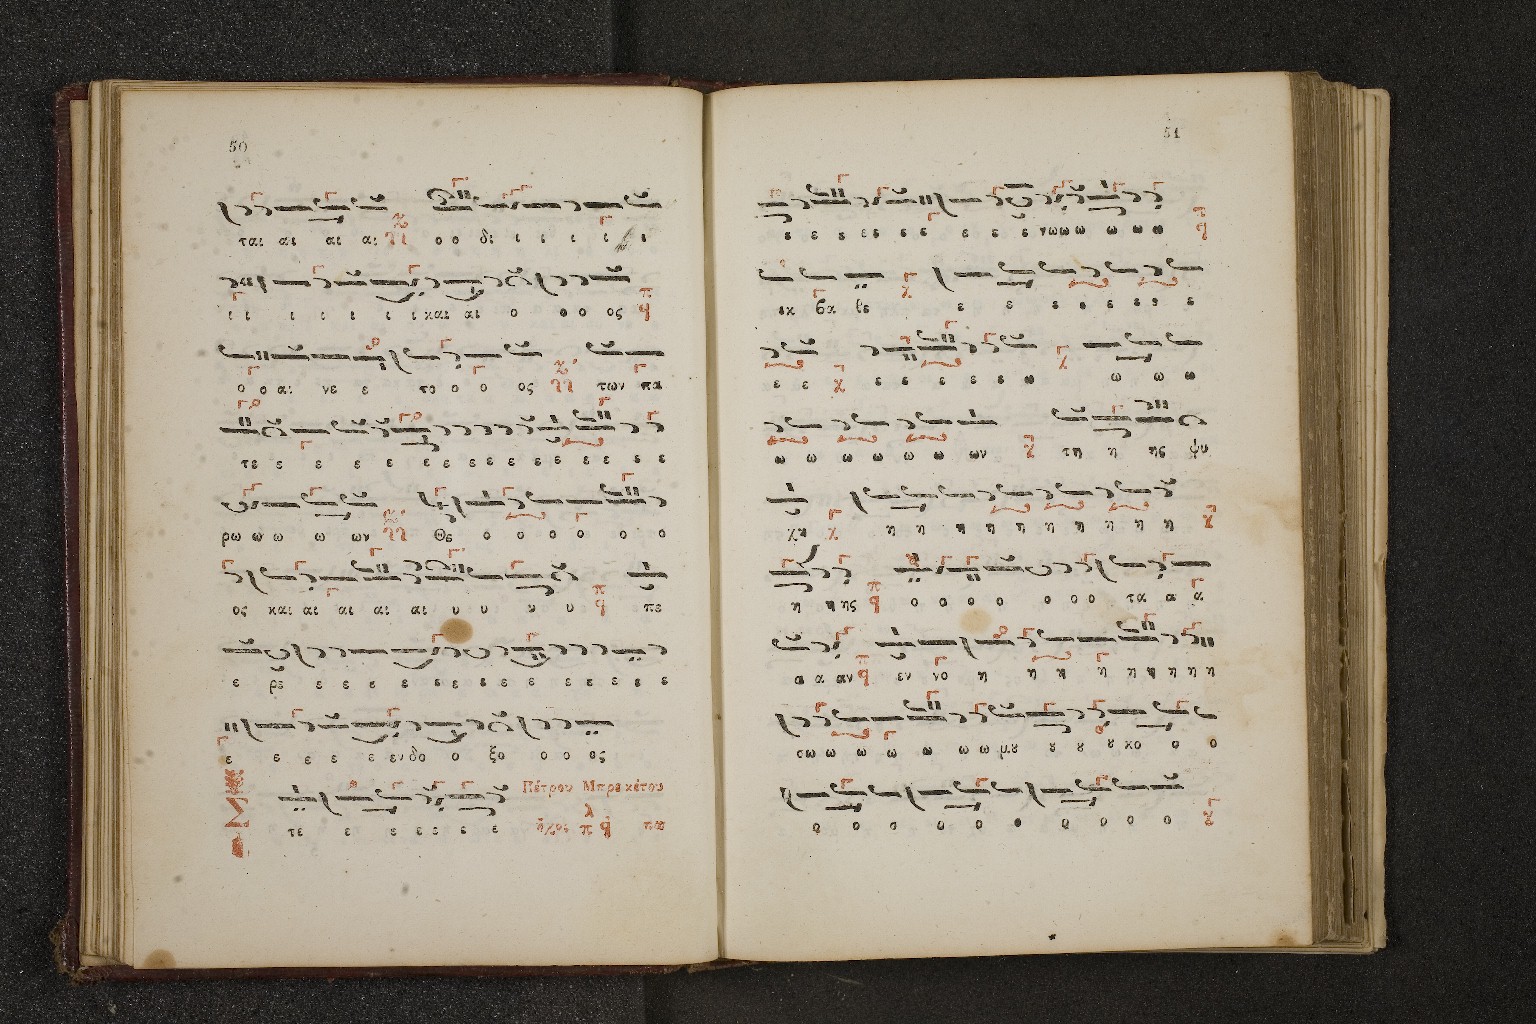 50
ται αι αι αι ο ο δι ι ι ι ι ι
ι ι ι ι ι ι ι και αι ο ο ο ος
ο ο αι νε ε το ο ο ος των πα
τε ε ε ε ε ε ε ε ε ε ε ε ε ε ε
ρω ω ω ω ων Θε ο ο ο ο ο ο
ος και αι αι αι αι υ υ υ υ πε
ε ρε ε ε ε ε ε ε ε ε ε ε ε ε ε ε
ε ε ε ε ε ενδο ο ξο ο ο ος
Πέτρου Μπρεκέτου
Μ τε ε ε ε ε ε ἦχος π πα
51
ε ε ε ε ε ε ε ε ε ε νω ω ω ω ω ω
εκ βα λε ε ε ε ε ε ε ε
ε ε ε ε ε ε ε ω ω ω ω
ω ω ω ω ω ω ων τη η ης ψυ
χη η η η η η η η η η η
η η ης ο ο ο ο ο ο ο τα α α
α α αν εν νο η η η η η η η η η
σω ω ω ω ω ω ω μȣ ȣ ȣ ȣ κο ο ο
ο ο ο ο ο ο ο ο ο ο